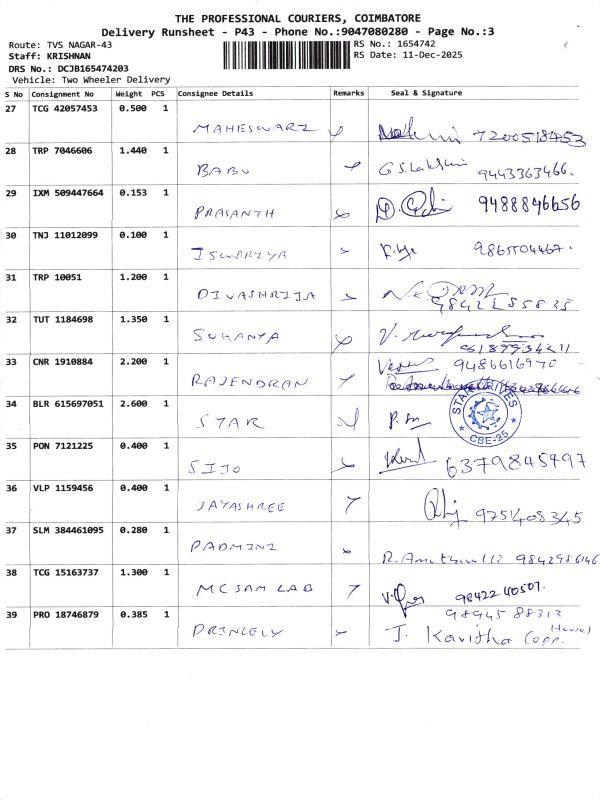 THE PROFESSIONAL COURIERS, COIMBATORE
Delivery Runsheet - P43 - Phone No.:9047080280 - Page No.:3
Route: TVS NAGAR-43 RS No.: 1654742
Staff: KRISHNAN RS Date: 11-Dec-2025
DRS No.: DCJB165474203
Vehicle: Two Wheeler Delivery
S No Consignment No Weight PCS Consignee Details Remarks Seal & Signature
27 TCG 42057453 0.500 1
MAHESWARI 7200518453
28 TRP 7046606 1.440 1
BABU G S Lakshmi 9443363466.
29 IXM 509447664 0.153 1
PRASANTH 9488846656
30 TNJ 11012099 0.100 1
ISWARIYA 9865504467.
31 TRP 10051 1.200 1
DIVASHRIJA
32 TUT 1184698 1.350 1
SUKANYA
33 CNR 1910884 2.200 1
RAJENDRAN 9486616970
34 BLR 615697051 2.600 1
STAR
STAR DRIVES
CBE-25
35 PON 7121225 0.400 1
SIJO 6379845797
36 VLP 1159456 0.400 1
JAYASHREE 9751408345
37 SLM 384461095 0.280 1
PADMINI 9842986146
38 TCG 15163737 1.300 1
MC SAM LAB 98422 40507.
39 PRO 18746879 0.385 1
98945 88313
PRINCELY J. Kavitha (opp. House)